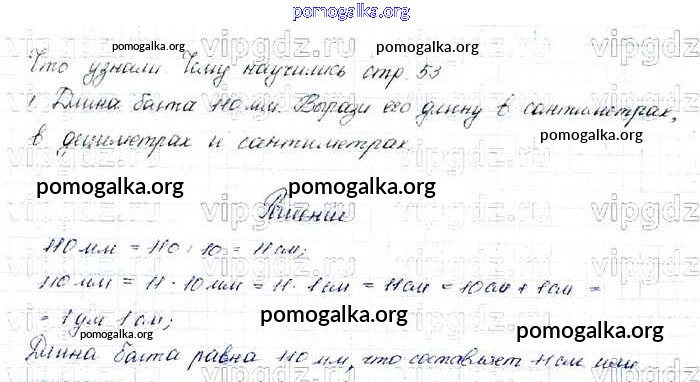 pomogalka.org
Что узнали. Чему научились стр. 53
1. Длина болта 110 мм. Вырази его длину в сантиметрах,
в дециметрах и сантиметрах.
Решение
110 мм = 110 : 10 = 11 см;
110 мм = 11 · 10 мм = 11 · 1 см = 11 см = 10 см + 1 см =
= 1 дм 1 см;
Длина болта равна 110 мм, что составляет 11 см или
pomogalka.org pomogalka.org pomogalka.org
pomogalka.org
pomogalka.org pomogalka.org
pomogalka.org pomogalka.org
vipgdz vipgdz vipgdz